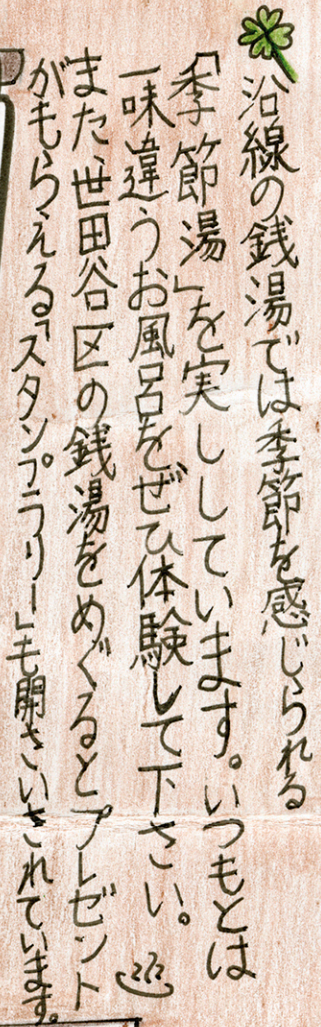 沿線の銭湯では季節を感じられる
「季節湯」を実ししています。いつもとは
一味違うお風呂をぜひ体験して下さい。
また、世田谷区の銭湯をめぐるとプレゼント
がもらえる「スタンプラリー」も開さいされています。